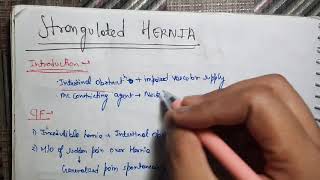 Strangulated HERNIA
Introduction →
Intestinal Obstructn + impaired vascular supply
mc constricting agent → Neck
C/F →
1) Irreducible hernia + Intestinal obs
2) H/O of sudden pain over Hernia
↓
Generalized pain spontaneo